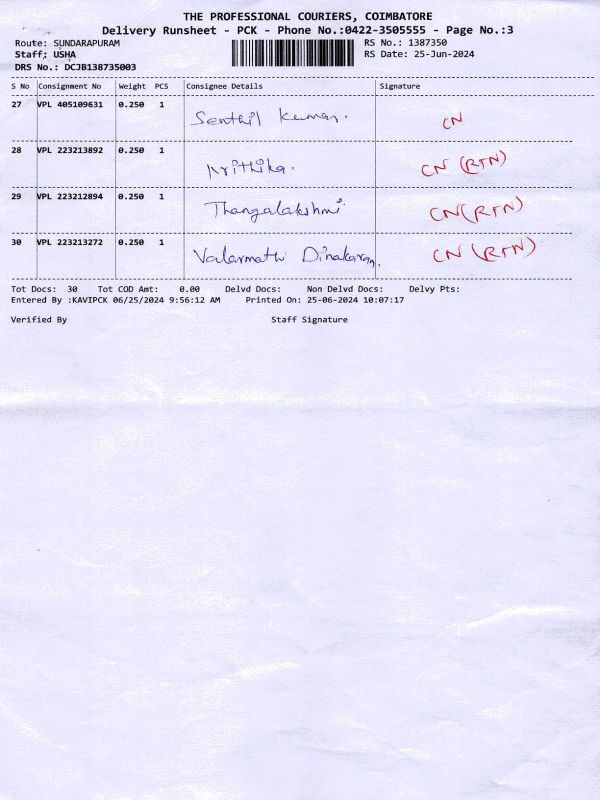 THE PROFESSIONAL COURIERS, COIMBATORE
Delivery Runsheet - PCK - Phone No.:0422-3505555 - Page No.:3
Route: SUNDARAPURAM RS No.: 1387350
Staff; USHA RS Date: 25-Jun-2024
DRS No.: DCJB138735003
S No Consignment No Weight PCS Consignee Details Signature
27 VPL 405109631 0.250 1 Senthil Kumar. CN
28 VPL 223213892 0.250 1 Krithika. CN (RTN)
29 VPL 223212894 0.250 1 Thangalakshmi CN(RTN)
30 VPL 223213272 0.250 1 Valarmathi Dinakaran. CN (RTN)
Tot Docs: 30 Tot COD Amt: 0.00 Delvd Docs: Non Delvd Docs: Delvy Pts:
Entered By :KAVIPCK 06/25/2024 9:56:12 AM Printed On: 25-06-2024 10:07:17
Verified By Staff Signature